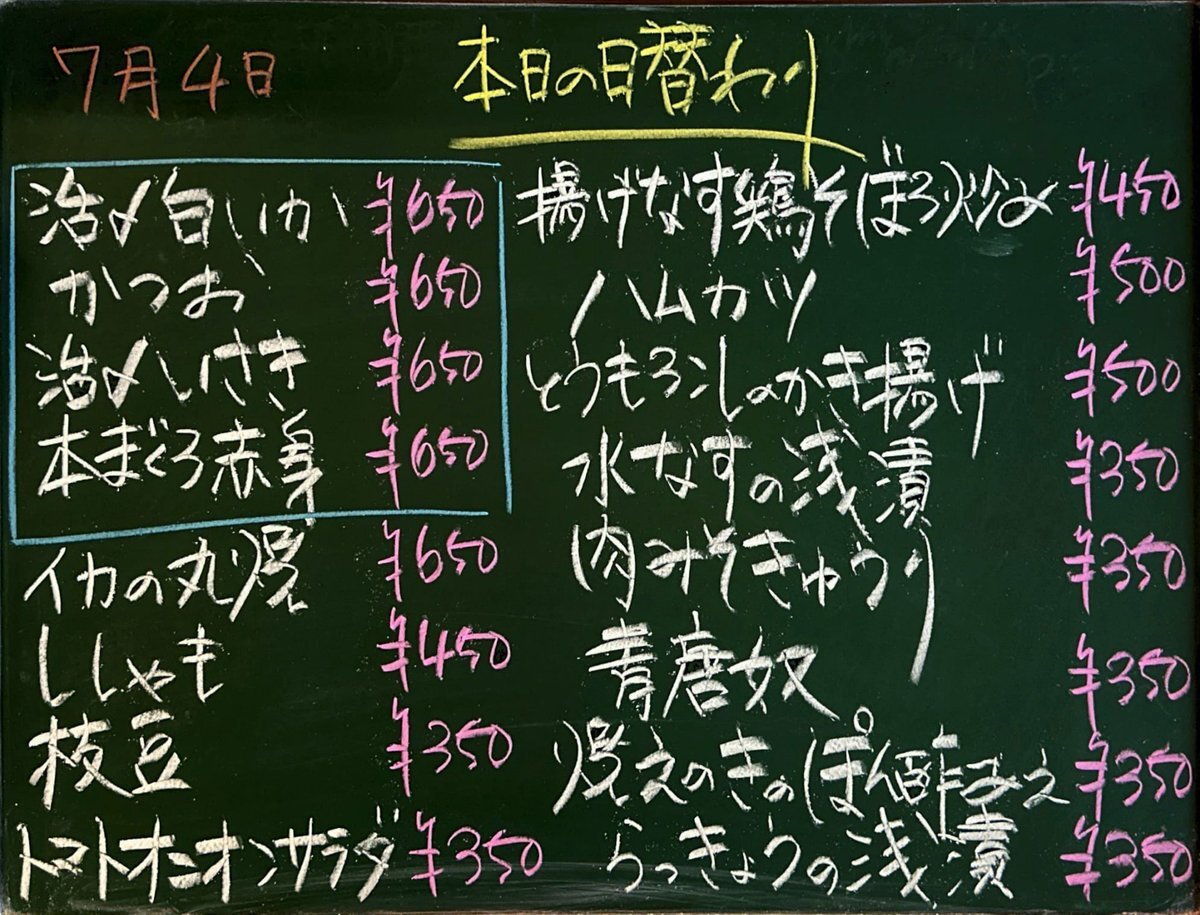 7月4日
本日の日替わり
活〆白いか ¥650
かつお ¥650
活〆いさき ¥650
本まぐろ赤身 ¥650
イカの丸焼 ¥650
ししゃも ¥450
枝豆 ¥350
トマトオニオンサラダ ¥350
揚げなす鶏そぼろ炒め ¥450
ハムカツ ¥500
とうもろこしのかき揚げ ¥500
水なすの浅漬 ¥350
肉みそきゅうり ¥350
青唐奴 ¥350
焼えのきのぽん酢あえ ¥350
らっきょうの浅漬 ¥350